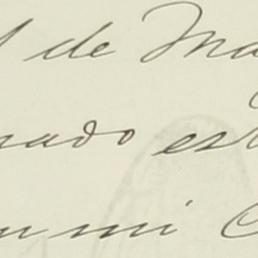 de Ma
ado est
mi C